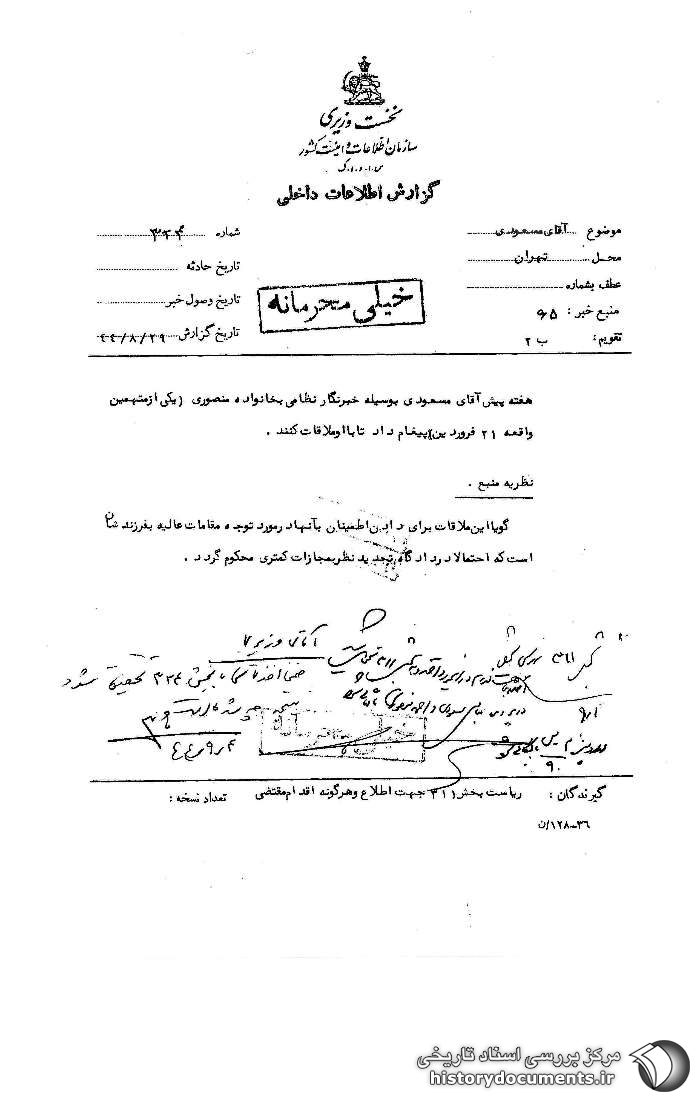 نخست وزیری
سازمان اطلاعات و امنیت کشور
س.ا.و.ا.ک
گزارش اطلاعات داخلی
موضوع آقای مسعودی
محل تهران
عطف بشماره
منبع خبر : ۶۵
تقویم : ب ۲
شماره ۳۳۴
تاریخ حادثه
تاریخ وصول خبر
تاریخ گزارش ۴۴/۸/۲۹
خیلی محرمانه
هفته پیش آقای مسعودی بوسیله خبرنگار نظامی بخانواده منصوری (یکی ازمتهمین
واقعه ۲۱ فروردین) پیغام داد تابااوملاقات کنند .
نظریه منبع .
گویا این ملاقات برای دادن اطمینان بآنهاد رمورد توجه مقامات عالیه بفرزند شان
است که احتمالا درداد گاه تجدید نظر بمجازات کمتری محکوم گردد .
آقای وزیری
ضمن اخذ تماس با بخش ۳۳۴ تحقیق شود
۴۴/۹/۴
خیلی محرمانه
گیرندگان : ریاست بخش ۳۱۱ جهت اطلاع وهرگونه اقدام مقتضی تعداد نسخه :
۳۶-۱۲۸/ن
مرکز بررسی اسناد تاریخی
historydocuments.ir